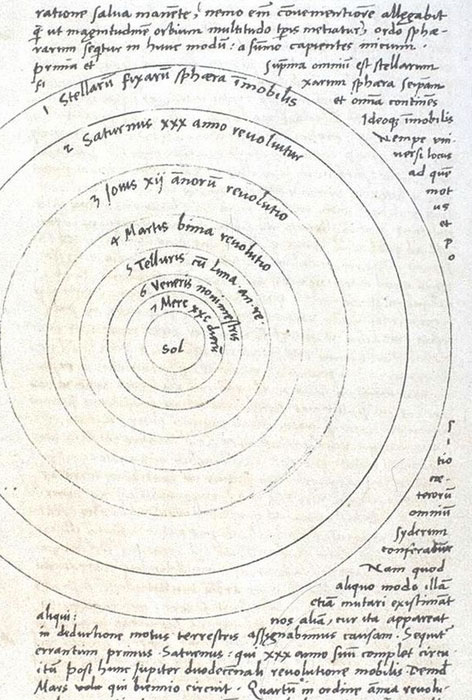 ratione salva manēte, nemo em̄ convenientiorē allegabit
q̄ ut magnitudinē orbium multitudo tp̄is metiatur, ordo sphæ-
rarum seqtur in hunc modū: a sum̄o capientes initium.
prima et sup̄ma omniū est stellarum
fixarum sphæra seipam
et omīa continēs
Ideoqƺ īmobilis
Nempe uni-
versi locus
ad quē
mot
us
et
po
1 Stellarū fixarū sphæra īmobilis
2 Saturnus xxx anno revolvitur
3 Jovis xij annorū revolutio
4 Martis bima revolutio
5 Telluris cū luna an. re.
6 Veneris nonimestris
7 Merc xxc dierū
Sol
si
tio
cæ-
terorū
omniū
syderum
conferatur
Nam quod
aliquo modo illā
etiā mutari existimāt
aliqui: nos aliā, cur ita appareat
in deductione motus terrestris assignabimus causam. Sequitr
errantium primus Saturnus: qui xxx anno suū complet circu-
itū Post hunc Jupiter duodecennali revolutione mobilis Deinde
Mars volo qui biennio circuit. Quartū in ordine anua revolu-